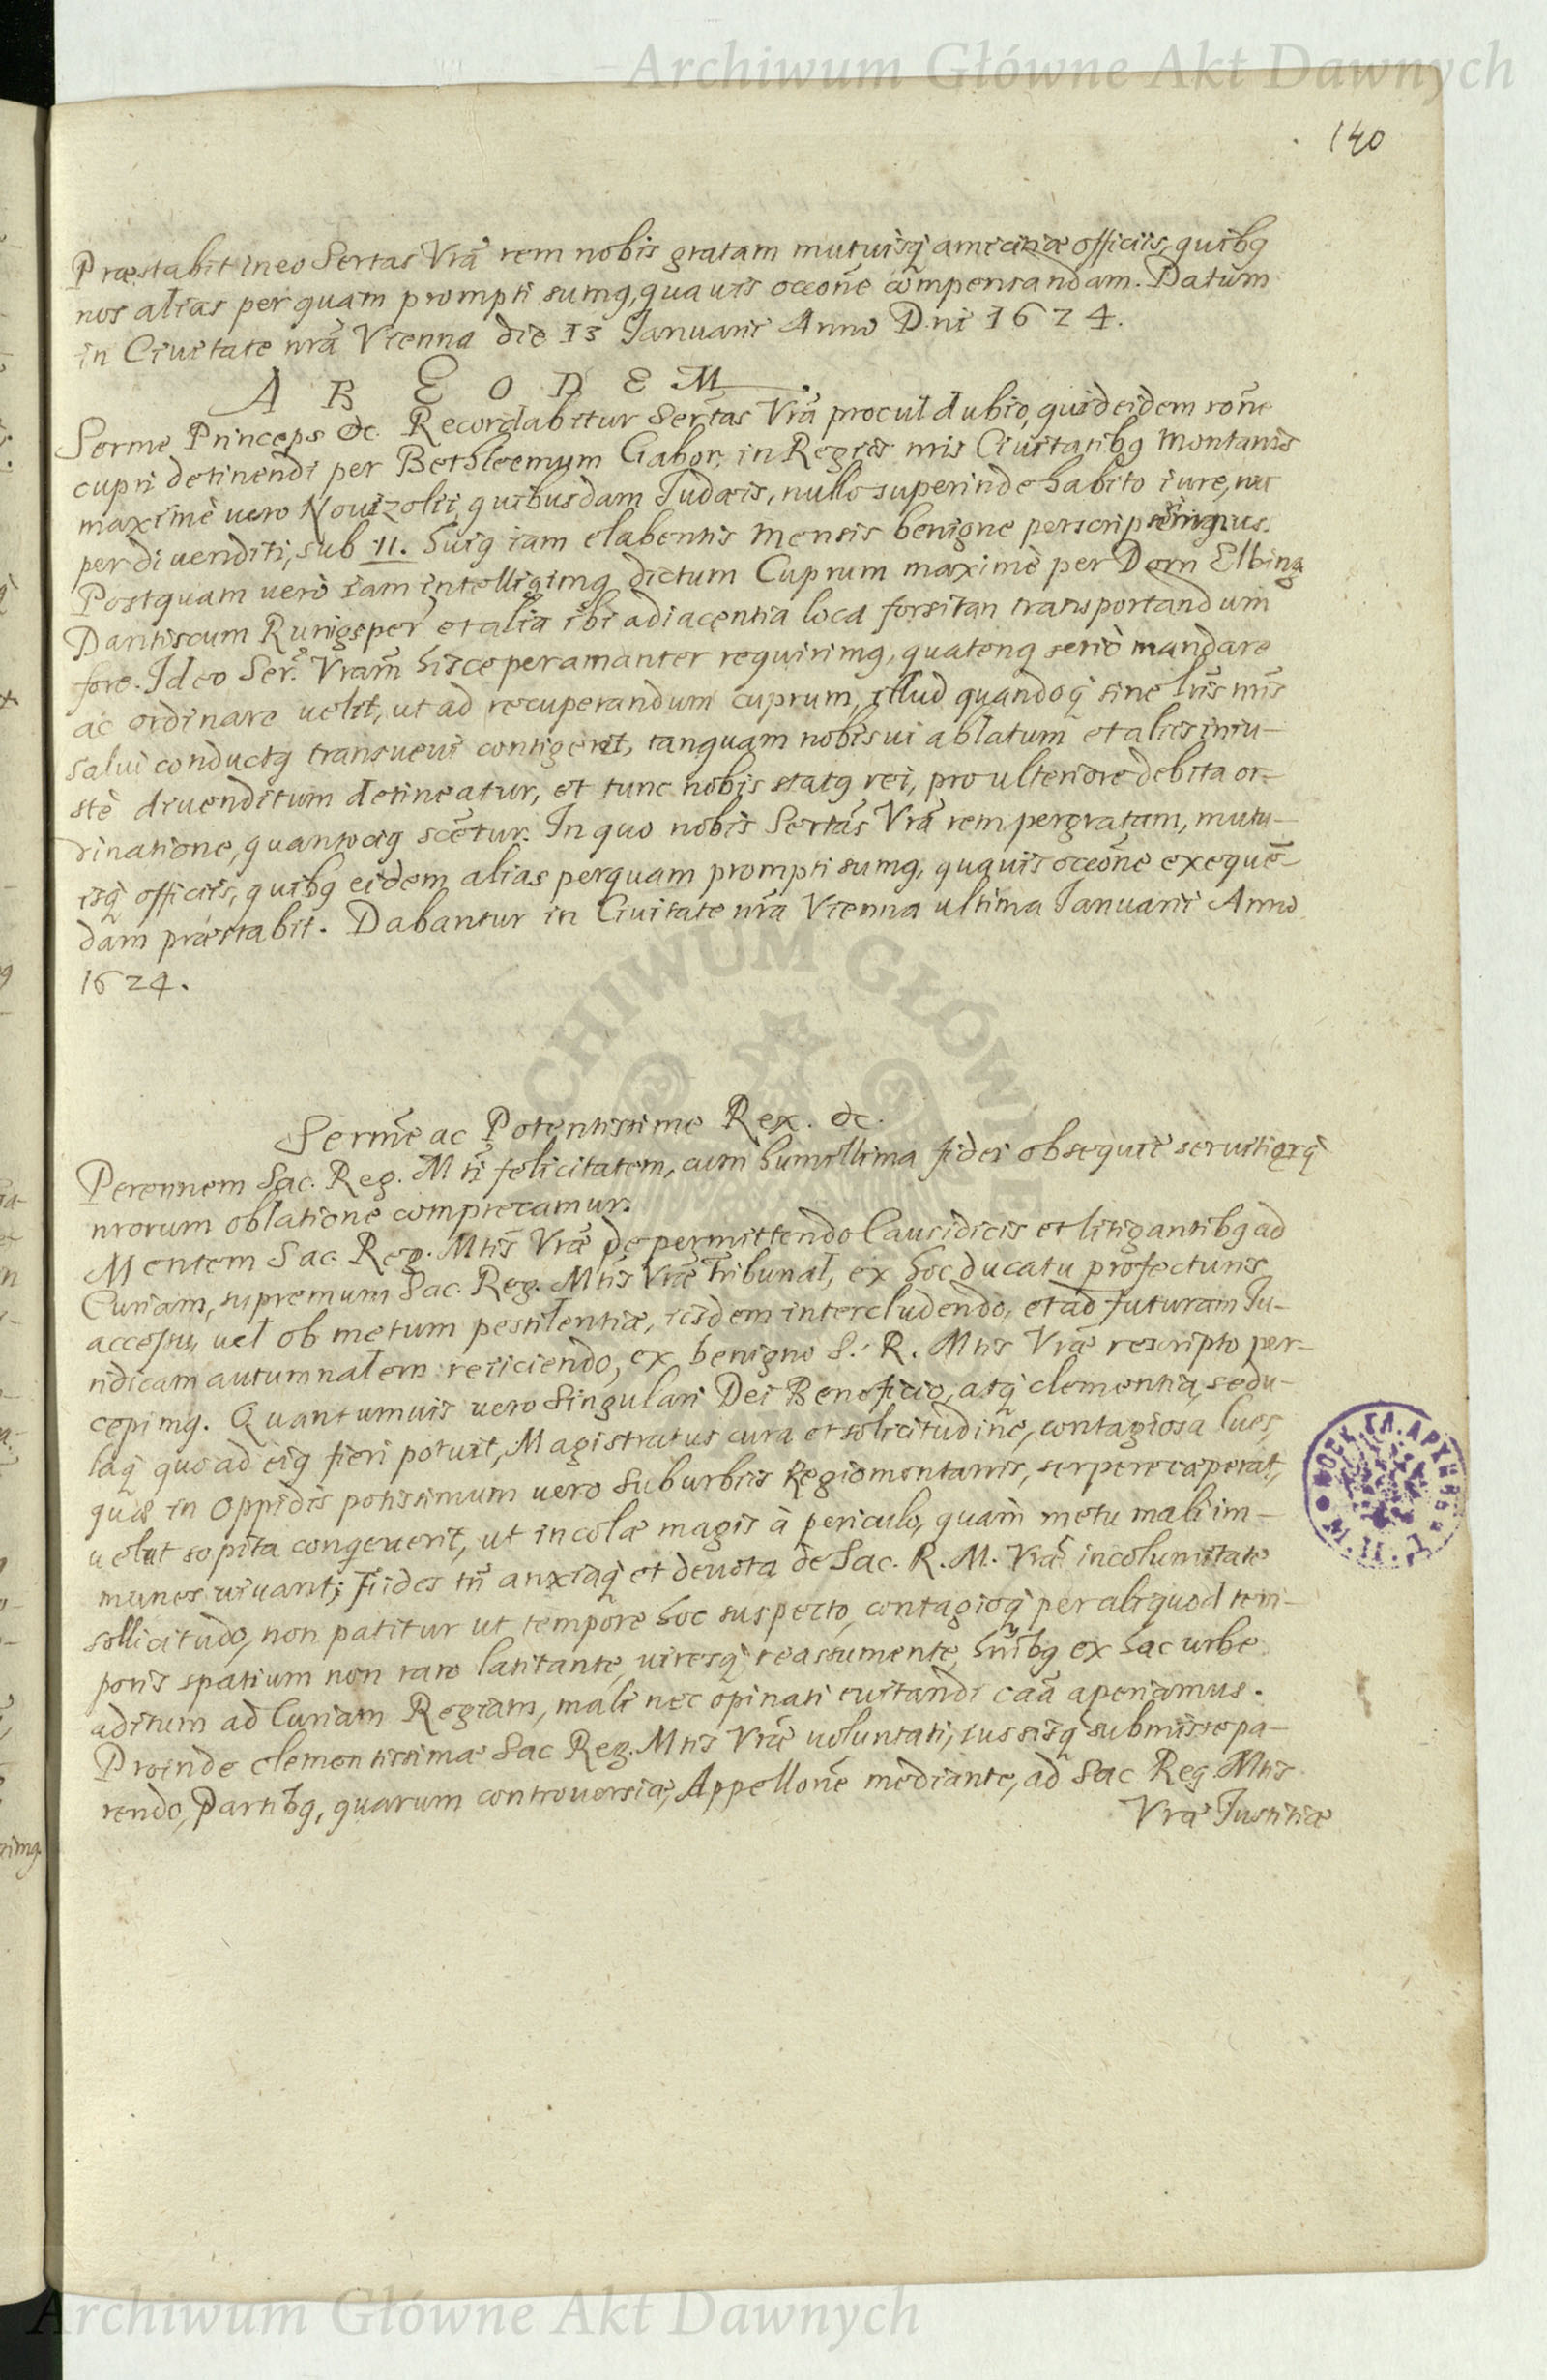 Archiwum Główne Akt Dawnych
140
Præstabit in eo Sertas Vrã rem nobis gratam mutuisq amicitiæ officiis, quibq
nos alias per quam prompti sumq, quauis occoñe compensandam. Datum
in Ciuitate nrã Vienna die 13 Ianuarii Anno Dni 1624.
A B E O D E M
Serme Princeps &c. Recordabitur Sertas Vrã procul dubio, quid eidem roñe
cupri detinendi per Bethleemum Gabor, in Regiis nris Ciuitatibq Montanis
maximè vero Novizolii, quibusdam Iudæis, nullo superinde habito iure, nec
per di venditi, sub 11. huiq iam elabentis mensis benigne perscripserimus.
Postquam verò iam intelligimq dictum Cuprum maximè per Dorn Elbing
Dantiscum Runigsper et alia ibi adiacentia loca forsitan transportandum
fore. Ideo Ser. Vram hisce peramanter requirimq, quatenq seriò mandare
ac ordinare uelit, ut ad recuperandum cuprum, illud quandoq sine lris nris
salui conductq transuehi contigerit, tanquam nobis ui ablatum et aliis iniu-
stè diuenditum detineatur, et tunc nobis statq rei, pro ulteriore debita or-
dinatione, quantociq scẽtur. In quo nobis Sertas Vrã rem pergratam, mutu-
isq officiis, quibq eidem alias perquam prompti sumq, quauis occoñe exequẽ-
dam præstabit. Dabantur in Ciuitate nrã Vienna ultima Ianuarii Anno
1624.
Sermẽ ac Potentissime Rex. &c.
Perennem Sac. Reg. Mti felicitatem, cum humillima fidei obsequii seruitiorq
nrorum oblatione comprecamur.
Mentem Sac. Reg. Mtis Vræ de permittendo Causidicis et litigantibq ad
Curiam, supremum Sac. Reg. Mtis Vræ Tribunal, ex hoc ducatu profecturis
accessu, uel ob metum pestilentiæ, iisdem intercludendo, et ad futuram Iu-
ridicam autumnalem reiiciendo, ex benigno S. R. Mtis Vræ rescripto per-
cepimq. Quantumuis uero singulari Dei Beneficio, atq clementia, sedu-
laq quoad eiq fieri potuit, Magistratus cura et solicitudine, contagiosa lues,
quæ in oppidis potissimum uero suburbiis Regiomontanis, serpere cæperat,
uelut sopita conqeuerit, ut incolæ magis à periculo, quam metu mali im-
munes uiuant; Fides tñ anxiaq et deuota de Sac. R. M. Vræ incolumitate
sollicitudo, non patitur ut tempore hoc suspecto, contagioq per aliquod tem-
poris spatium non raro latitante, uiresq reassumente, hoibq ex hac urbe
aditum ad Curiam Regiam, mali nec opinati euitandi caã aperiamus.
Proinde clementissimæ Sac Reg. Mtis Vræ uoluntati, iussisq submisse pa-
rendo, Partibq, quarum controuersiæ, Appellone mediante, ad Sac Reg. Mtis
Vræ Iustitiæ
Archiwum Główne Akt Dawnych